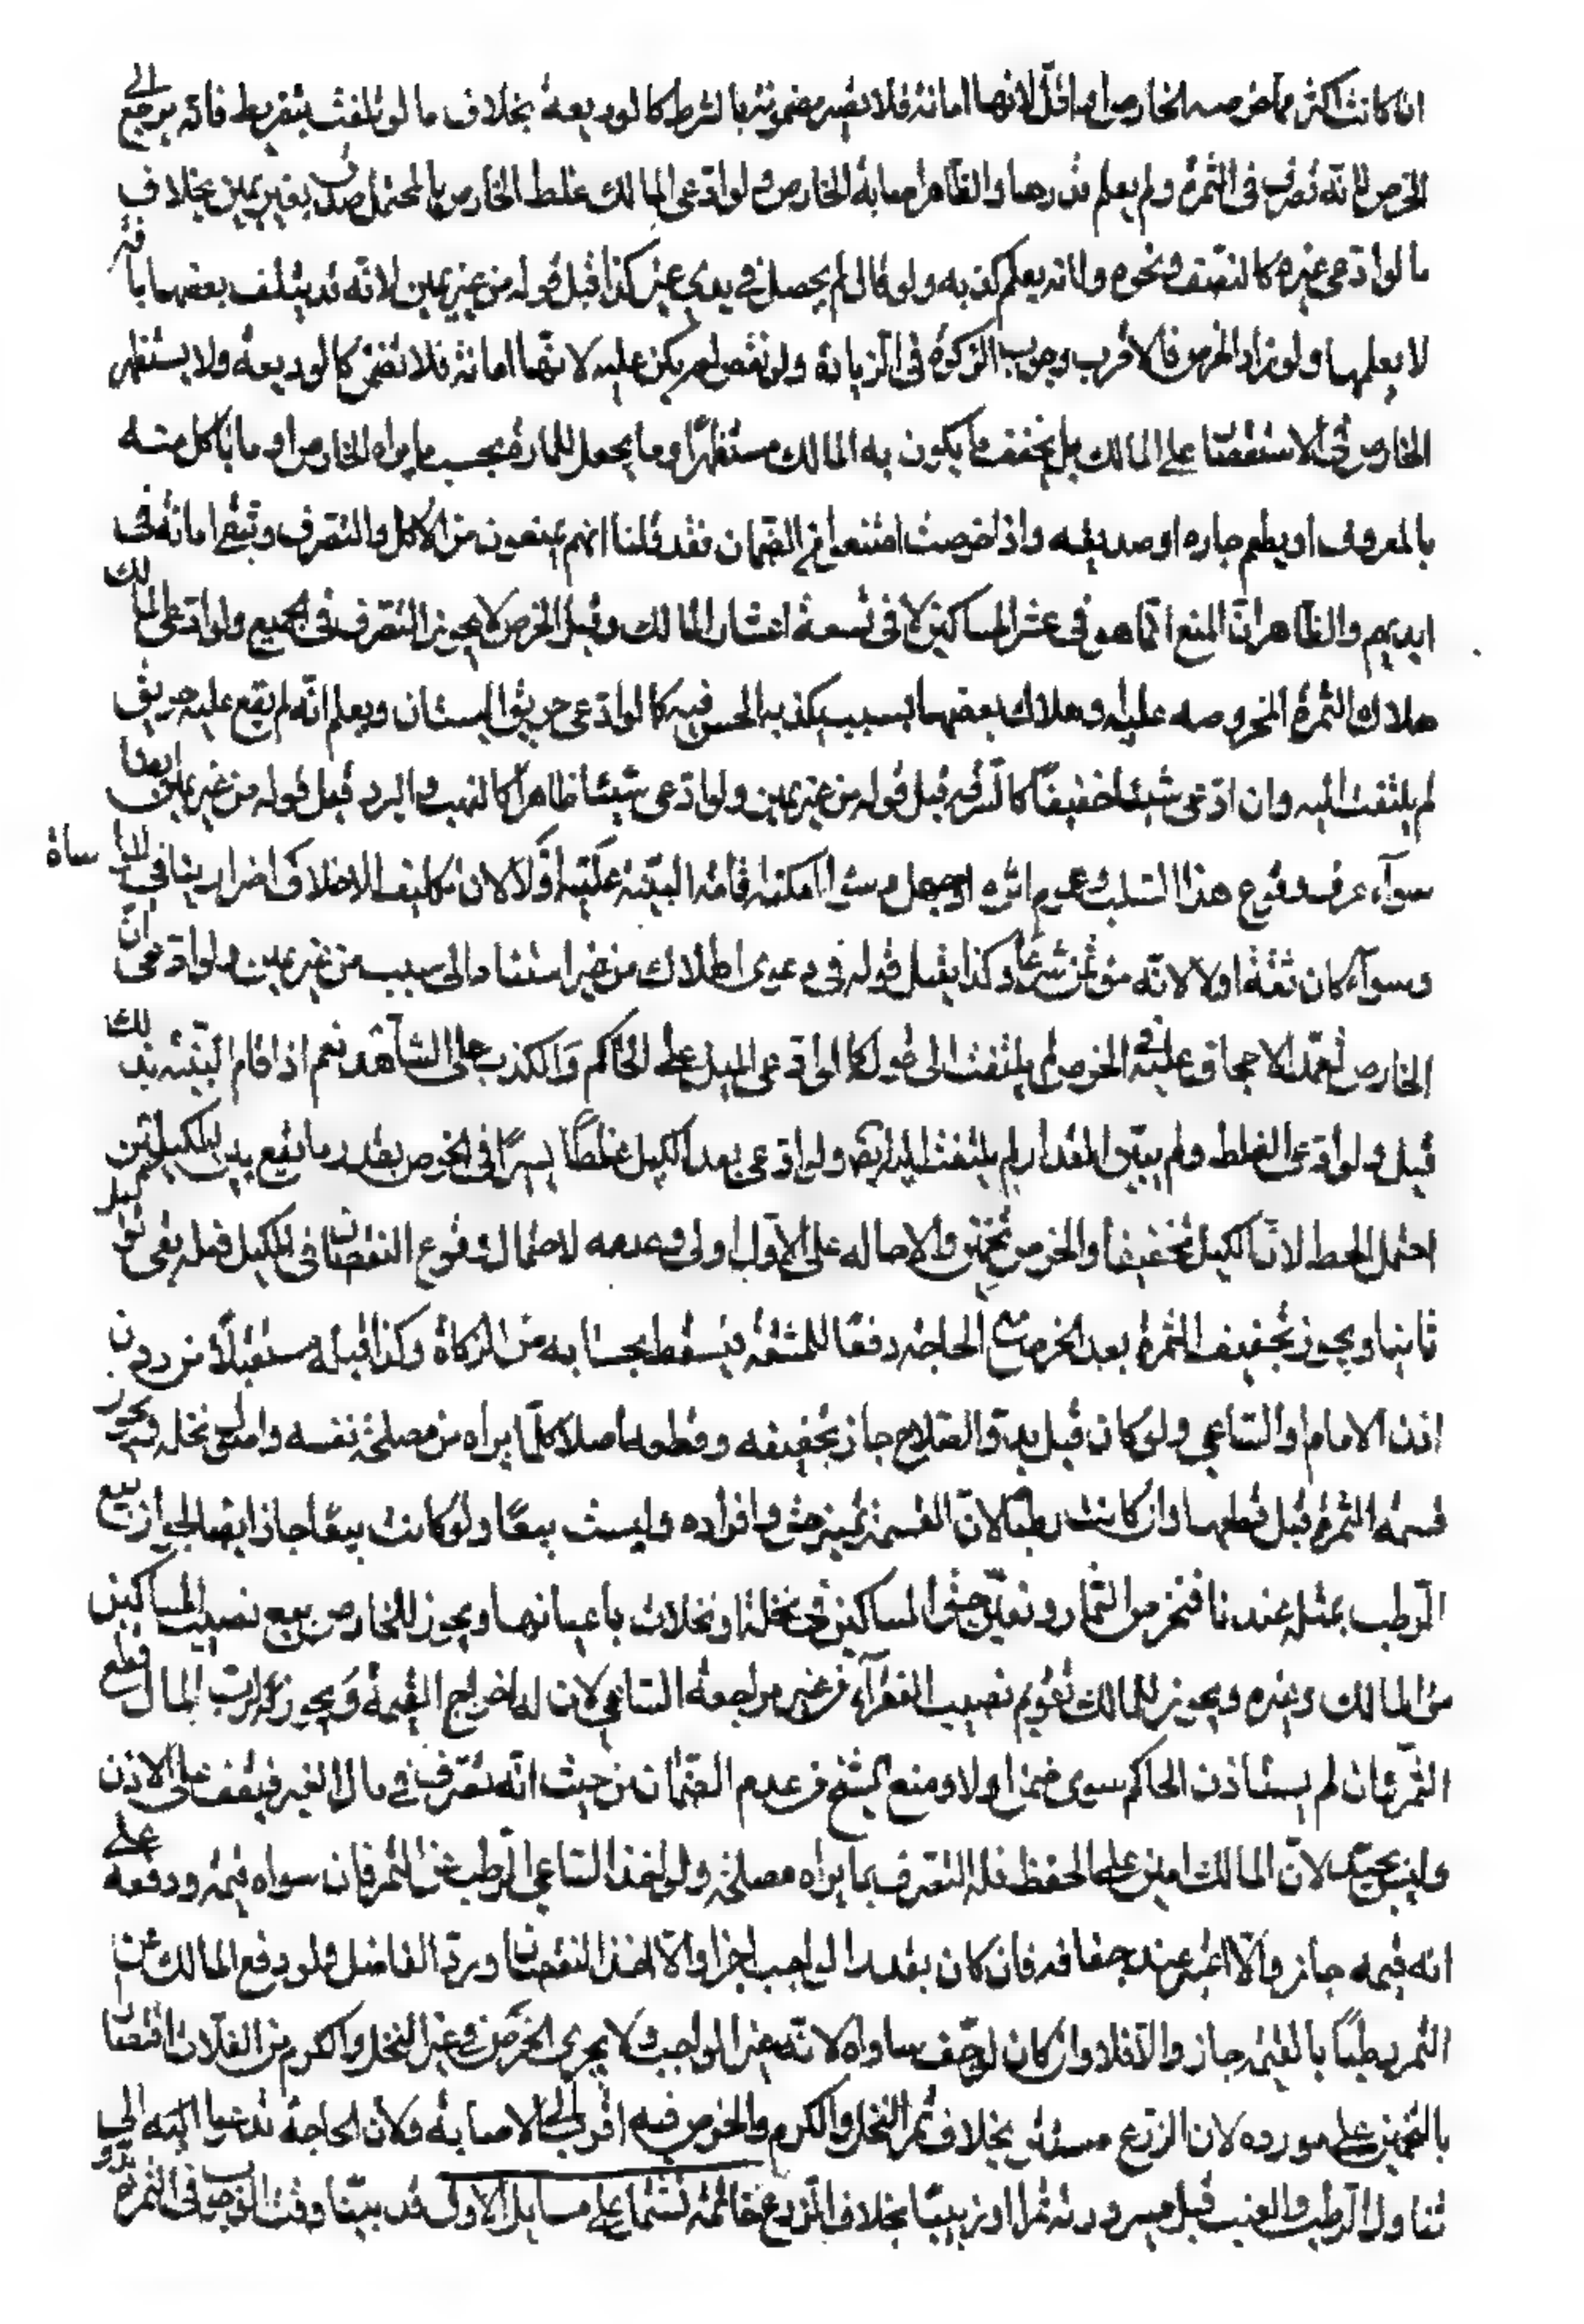 ان كانت اكثر مما خرصه الخارص او اقل لانها امانة فلا تصير مضمونة بالشرط كالوديعة بخلاف ما لو تلفت بتفريط فانه يرجع الى
الخرص لانه تصرف فى الثمرة ولم يعلم قدرها والظاهر اصابة الخارص ولو ادعى المالك غلط الخارص بالمحتمل صدق بغير يمين بخلاف
ما لو ادعى غيره كالنصف ونحوه ولانه يعلم كذبه ولو قال لم يحصل في يدي غير كذا قبل قوله من غير يمين لانه قد يتلف بعضها بافة
لا يعلمها ولو زاد الخرص فالاقرب وجوب الزكوة فى الزيادة ولو نقص لم يكن عليه لانها امانة فلا تضمن كالوديعة ولا يستظهر
الخارص في الاستقصا على المالك بل يخفف ما يكون به المالك مستظهرا وما يجعل للمارة بحسب ما يراه الخارص او ما ياكل منه
بالمعروف او يطعم جاره او صديقه واذا خرصت امتنعوا من الضمان فقد قلنا انهم يمنعون من الاكل والتصرف وتبقى امانة في
ايديهم والظاهر ان المنع انما هو فى عشر المساكين لا فى تسعة اعشار المالك وقبل الخرص لا يجوز التصرف فى الجميع ولو ادعى المالك
هلاك الثمرة المخروصه عليه وهلاك بعضها بسبب يكذبه الحس فيه كما لو ادعى حريق البستان ويعلم انه لم يقع عليه حريق
لم يلتفت اليه وان ادعى شيئا خفيفا كالسرقه قبل قوله من غير يمين ولو ادعى شيئا ظاهرا كالنهب والبرد قبل قوله من غير يمين ايضا
سوآء عرف وقوع هذا السلب وعموم اثره او جهل وسواء امكنه اقامة البينة عليه او لا لان تكليف الاحلاف اضرار ينافى المواساة
وسوآء كان ثقة او لا لانه مؤتمن شرعا وكذا يقبل قوله فى دعوى الهلاك من غير استناد الى سبب من غير يمين ولو ادعى ان
الخارص تعمد الاجحاف عليه فى الخرص لم يلتفت الى قوله كما لو ادعى الميل على الحاكم والكذب على الشاهد نعم اذا قام البينه بذلك
قبل ولو ادعى الغلط ولم يبين المقدار لم يلتفت اليه ايضا ولو ادعى بعد الكيل غلطا يسيرا فى الخرص بقدر ما يقع بين الكيلتين
احتمل الحط لان الكيل تحقيقا والخرص تخمين والاحاله على الاول اولى وعدمه لاحتمال وقوع النقصان فى الكيل فلعله يفى لو كيل
ثانيا ويجوز تجفيف الثمرة بعد الخرص مع الحاجة دفعا للمشقة فيسقط بحسابه من الزكاة وكذا قبله مستقبلا من دون
اذن الامام او الساعي ولو كان قبل بدو الصلاح جاز تخفيفه وقطعه اصلا كلما يراه من مصلحة نفسه واصلح نخله ويجوز
قسمة الثمرة قبل قطعها وان كانت رطبا لان القسمة تميز حق وافراده وليست بيعا ولو كانت بيعا جاز ايضا لجواز بيع
الرطب بمثله عندنا فتخرص الثمار ويعين حق المساكين فى نخلة او نخلات باعيانها ويجوز للخارص بيع نصيب المساكين
من المالك وغيره ويجوز للمالك تقويم نصيب الفقرآء من غير مراجعة الساعي لان له اخراج القيمة ويجوز لارباب المال قطع
الثمرة وان لم يستاذن الحاكم سوى ضمن او لا ومنع الشيخ من عدم الضمان من حيث انه تصرف في مال الغير فيقف على الاذن
وليس بجيد لان المالك امين على الحفظ فله التصرف بما يراه مصلحة ولو اخذ الساعي الرطب عن التمر فان سواه قيمة ودفعه على
انه قيمه جاز والا اعتبر عند جفافه فان كان بقدر الواجب اجزا والا اخذ النقصان ورد الفاضل ولو دفع المالك عن
التمر رطبا بالقيمة جاز والا فلا وان كان لو جف ساواه لانه غير الواجب ولا يجرى الخرص فى غير النخل والكرم من الغلات اقتصارا
بالتخمين على مورده لان الزرع مستور بخلاف ثمر النخل والكرم والخرص فيه اقرب الى الاصابة ولان الحاجة تدعوا اليه الى
تناول الرطب والعنب قبل صيرورته تمرا او زبيبا بخلاف الزرع خاتمة تشتمل على مسايل الاولى قد بينا وقت الوجوب فى الثمرة